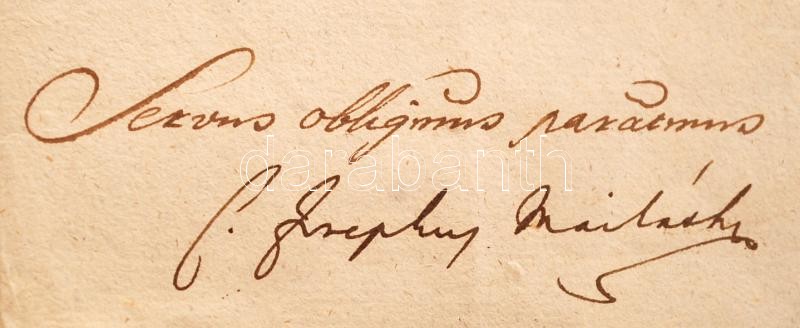 Servus obligmus paratmus
darabanth
C. Josephus Mailáth